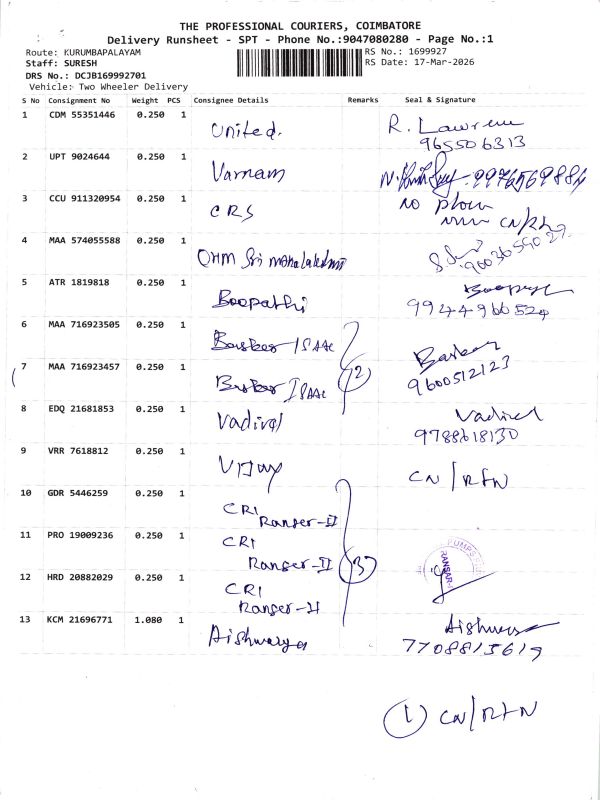 THE PROFESSIONAL COURIERS, COIMBATORE
Delivery Runsheet - SPT - Phone No.:9047080280 - Page No.:1
Route: KURUMBAPALAYAM
Staff: SURESH
DRS No.: DCJB169992701
Vehicle: Two Wheeler Delivery
RS No.: 1699927
RS Date: 17-Mar-2026
S No Consignment No Weight PCS Consignee Details Remarks Seal & Signature
1 CDM 55351446 0.250 1 United. R. Lawren
965506313
2 UPT 9024644 0.250 1 Varnam 9976569884
3 CCU 911320954 0.250 1 CRS no
4 MAA 574055588 0.250 1 OHM Sri mahalakshmi
5 ATR 1819818 0.250 1 Boopathi
9944966524
6 MAA 716923505 0.250 1 Basker ISAAC
7 MAA 716923457 0.250 1 Basker ISAAC (2) Baskar
9600512123
8 EDQ 21681853 0.250 1 Vadivel Vadivel
9788618130
9 VRR 7618812 0.250 1 Vijay CN/RTN
10 GDR 5446259 0.250 1 CRI
Ranser-II
11 PRO 19009236 0.250 1 CRI
Ranser-II (3)
12 HRD 20882029 0.250 1 CRI
Ranser-II
13 KCM 21696771 1.080 1 Aishwarya Aishwarya
7708815619
(1) CN/RTN